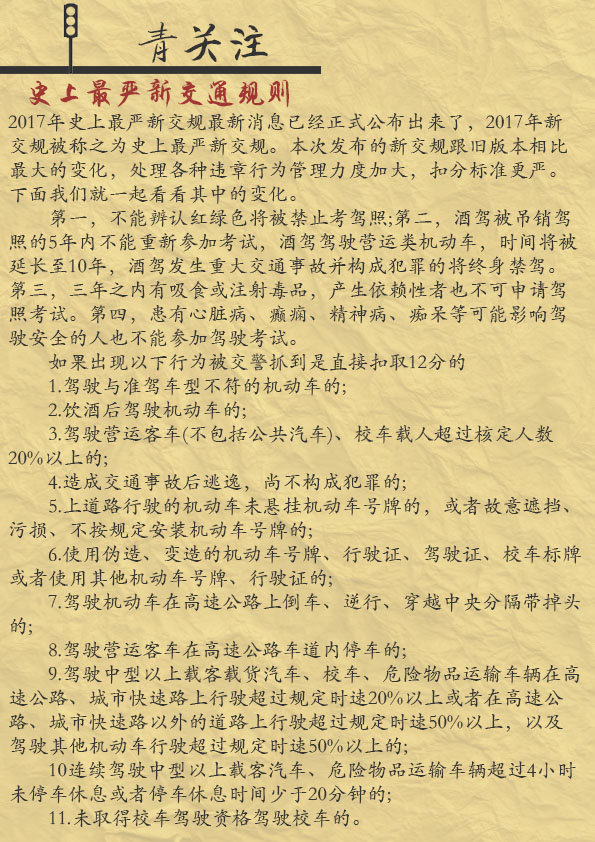 青关注
史上最严新交通规则
2017年史上最严新交规最新消息已经正式公布出来了，2017年新
交规被称之为史上最严新交规。本次发布的新交规跟旧版本相比
最大的变化，处理各种违章行为管理力度加大，扣分标准更严。
下面我们就一起看看其中的变化。
第一，不能辨认红绿色将被禁止考驾照;第二，酒驾被吊销驾
照的5年内不能重新参加考试，酒驾驾驶营运类机动车，时间将被
延长至10年，酒驾发生重大交通事故并构成犯罪的将终身禁驾。
第三，三年之内有吸食或注射毒品，产生依赖性者也不可申请驾
照考试。第四，患有心脏病、癫痫、精神病、痴呆等可能影响驾
驶安全的人也不能参加驾驶考试。
如果出现以下行为被交警抓到是直接扣取12分的
1.驾驶与准驾车型不符的机动车的;
2.饮酒后驾驶机动车的;
3.驾驶营运客车(不包括公共汽车)、校车载人超过核定人数
20%以上的;
4.造成交通事故后逃逸，尚不构成犯罪的;
5.上道路行驶的机动车未悬挂机动车号牌的，或者故意遮挡、
污损、不按规定安装机动车号牌的;
6.使用伪造、变造的机动车号牌、行驶证、驾驶证、校车标牌
或者使用其他机动车号牌、行驶证的;
7.驾驶机动车在高速公路上倒车、逆行、穿越中央分隔带掉头
的;
8.驾驶营运客车在高速公路车道内停车的;
9.驾驶中型以上载客载货汽车、校车、危险物品运输车辆在高
速公路、城市快速路上行驶超过规定时速20%以上或者在高速公
路、城市快速路以外的道路上行驶超过规定时速50%以上，以及
驾驶其他机动车行驶超过规定时速50%以上的;
10连续驾驶中型以上载客汽车、危险物品运输车辆超过4小时
未停车休息或者停车休息时间少于20分钟的;
11.未取得校车驾驶资格驾驶校车的。